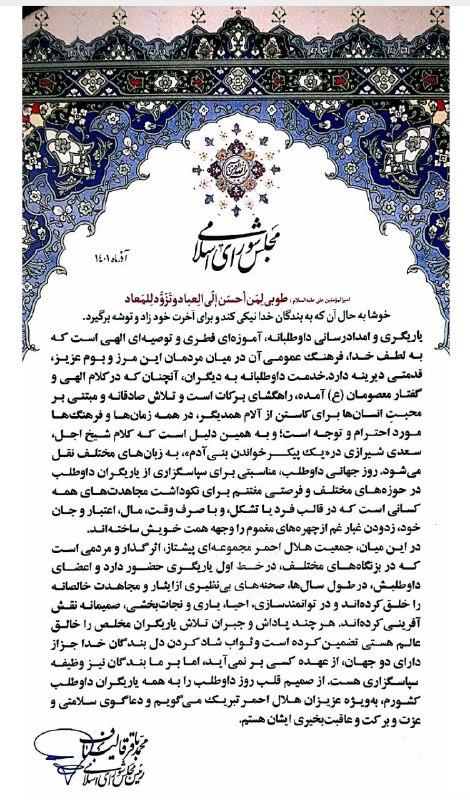 مجلس شورای اسلامی
آذرماه ۱۴۰۱
امیرالمؤمنین علی علیه‌السلام: طوبی لِمَن أحسَن إلَی العِباد و تَزَوَّد لِلمَعاد
خوشا به حال آن که به بندگان خدا نیکی کند و برای آخرت خود زاد و توشه برگیرد.
یاریگری و امدادرسانی داوطلبانه، آموزه‌ای فطری و توصیه‌ای الهی است که
به لطف خدا، فرهنگ عمومی آن در میان مردمان این مرز و بوم عزیز،
قدمتی دیرینه دارد. خدمت داوطلبانه به دیگران، آنچنان که در کلام الهی و
گفتار معصومان (ع) آمده، راهگشای برکات است و تلاش صادقانه و مبتنی بر
محبت انسان‌ها برای کاستن از آلام همدیگر، در همه زمان‌ها و فرهنگ‌ها
مورد احترام و توجه است؛ و به همین دلیل است که کلام شیخ اجل،
سعدی شیرازی در «یک پیکر خواندن بنی‌آدم»، به زبان‌های مختلف نقل
می‌شود. روز جهانی داوطلب، مناسبتی برای سپاسگزاری از یاریگران داوطلب
در حوزه‌های مختلف و فرصتی مغتنم برای نکوداشت مجاهدت‌های همه
کسانی است که در قالب فرد یا تشکل، و با صرف وقت، مال، اعتبار و جان
خود، زدودن غبار غم از چهره‌های مغموم را وجهه همت خویش ساخته‌اند.
در این میان، جمعیت هلال احمر مجموعه‌ای پیشتاز، اثرگذار و مردمی است
که در بزنگاه‌های مختلف، در خط اول یاریگری حضور دارد و اعضای
داوطلبش، در طول سال‌ها، صحنه‌های بی‌نظیری از ایثار و مجاهدت خالصانه
را خلق کرده‌اند و در توانمندسازی، احیا، یاری و نجات‌بخشی، صمیمانه نقش
آفرینی کرده‌اند. هر چند پاداش و جبران تلاش یاریگران مخلص را خالق
عالم هستی تضمین کرده است و ثواب شاد کردن دل بندگان خدا جز از
دارای دو جهان، از عهده کسی بر نمی‌آید، اما بر ما بندگان نیز وظیفه
سپاسگزاری هست. از صمیم قلب روز داوطلب را به همه یاریگران داوطلب
کشورم، به‌ویژه عزیزان هلال احمر تبریک می‌گویم و دعاگوی سلامتی و
عزت و برکت و عاقبت‌بخیری ایشان هستم.
محمدباقر قالیباف
رئیس مجلس شورای اسلامی